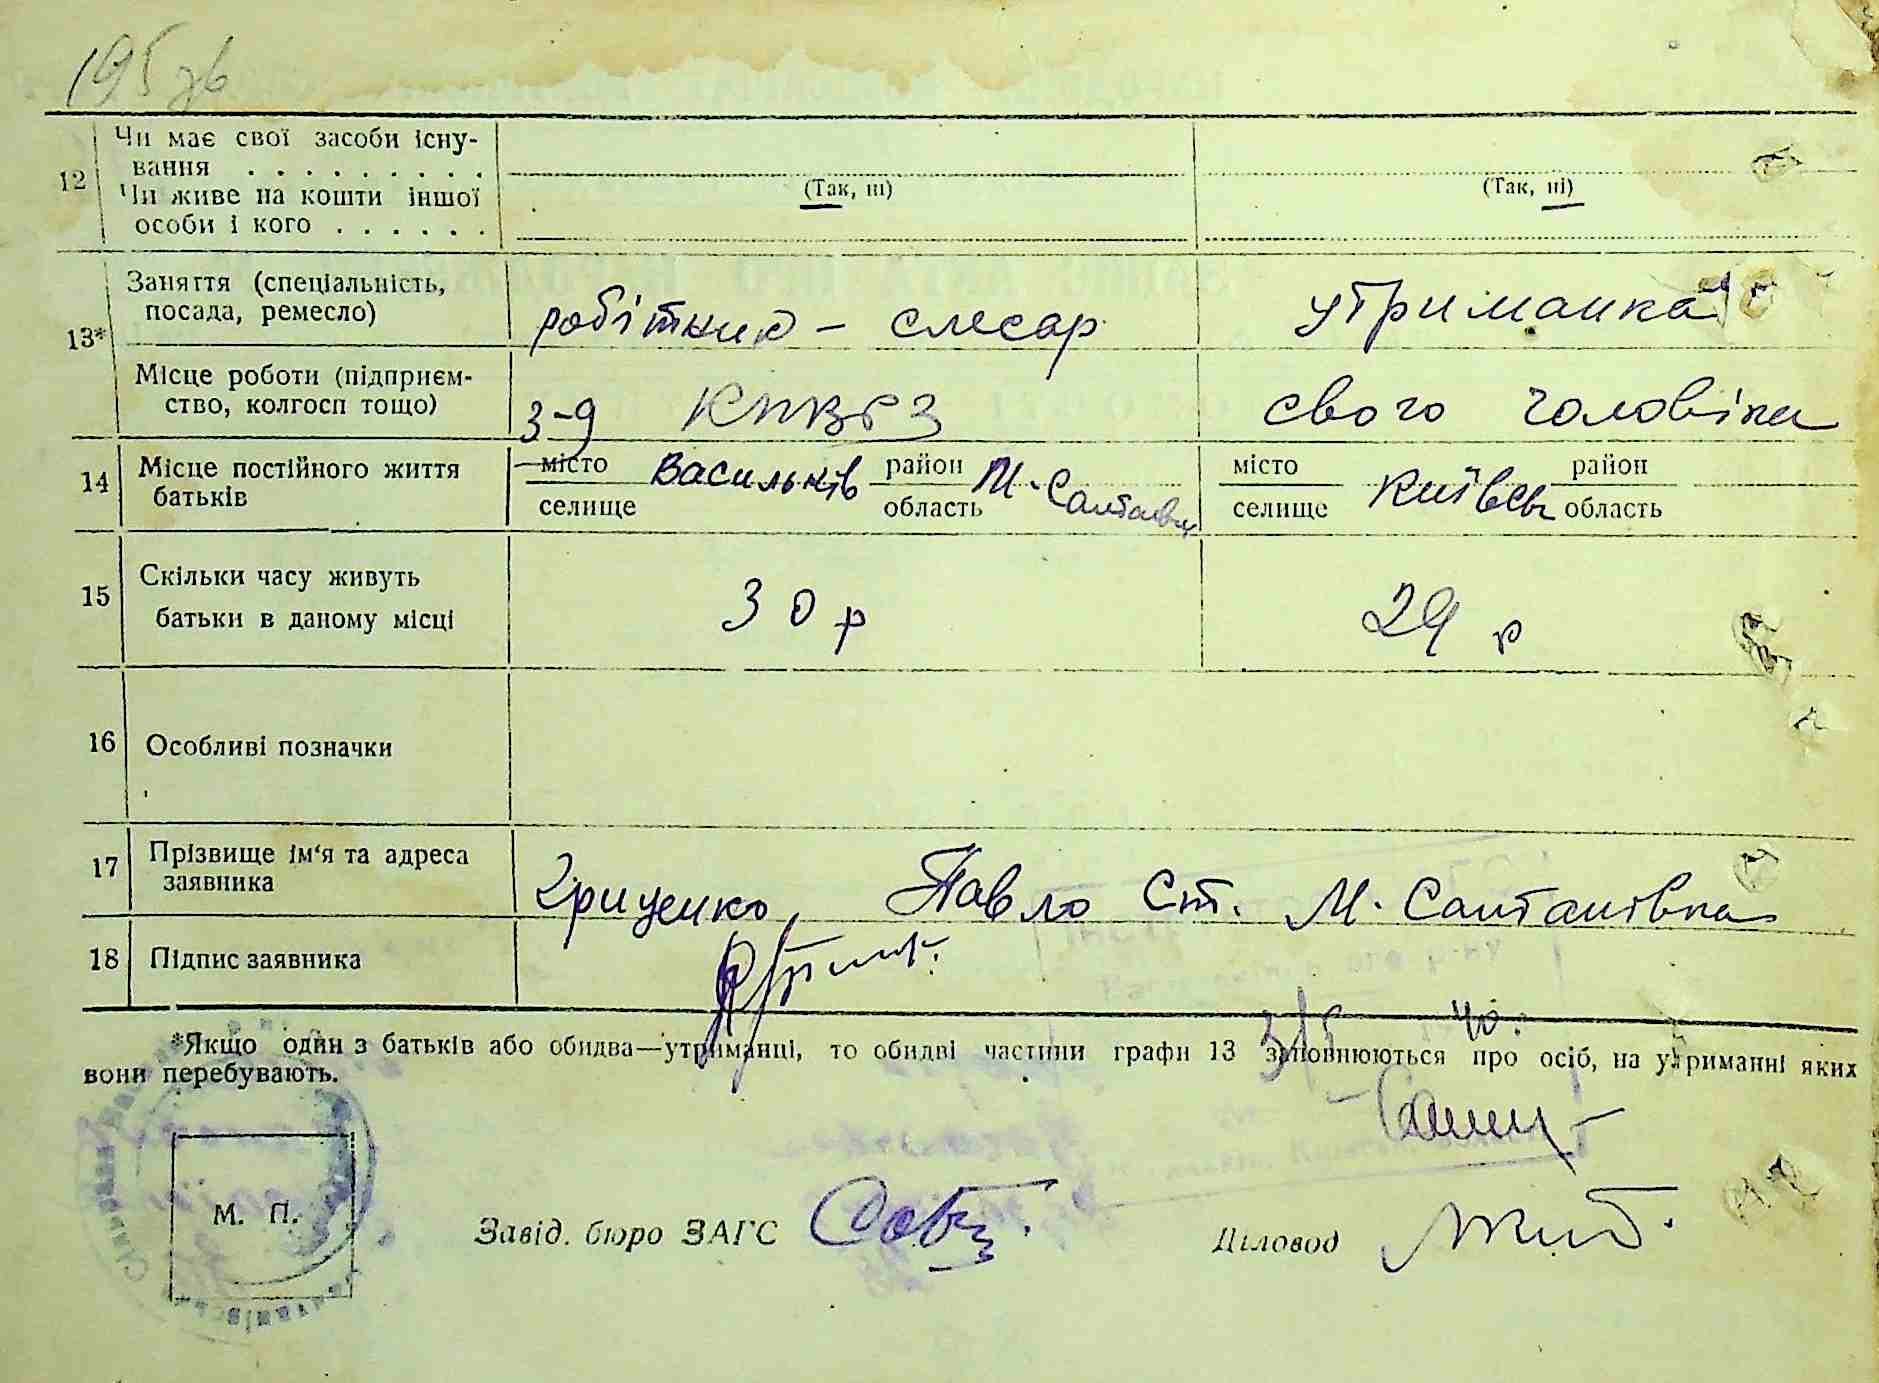 195 зв
12 Чи має свої засоби існу-
вання . . . . . . . . .
(Так, ні) (Так, ні)
Чи живе на кошти іншої
особи і кого . . . . . .
13* Заняття (спеціальність,
посада, ремесло) робітник – слесар утриманка
Місце роботи (підприєм-
ство, колгосп тощо) З-д КПВРЗ свого чоловіка
14 Місце постійного життя
батьків
місто Васильків район М-Салтанівка місто Київськ район
селище область селище область
15 Скільки часу живуть
батьки в даному місці 30 р 29 р
16 Особливі позначки
17 Прізвище ім'я та адреса
заявника Гриценко, Павло ст. М. Салтанівка
18 Підпис заявника
*Якщо один з батьків або обидва—утриманці, то обидві частини графи 13 заповнюються про осіб, на утриманні яких
вони перебувають.
М. П.
Завід. бюро ЗАГС Діловод